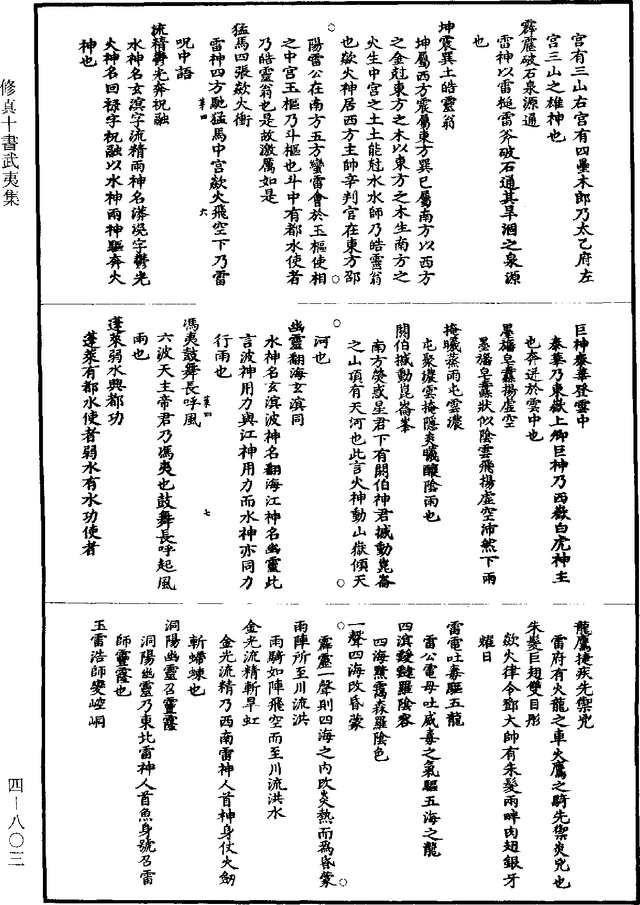 宮有三山右宮有四壘木郎乃太乙府左
宮三山之雄神也
霹靂破石泉源通
雷神以雷槌雷斧破石通其旱涸之泉源
也
坤震巽土皓靈翁
坤屬西方震屬東方巽巳屬南方以西方
之金尅東方之木以東方之木生南方之
火生中宮之土土能尅水水師乃皓靈翁
也歘火神居西方主帥辛判官在東方邵
陽雷公在南方五方蠻雷會於玉樞使相
之中宮玉樞乃斗樞也斗中有都水使者
乃皓靈翁也是故激厲如是
猛馬四張歘火衝
雷神四方馳猛馬中宮歘火飛空下乃雷
呪中語
流精鬱光奔祝融
水神名玄溟字流精雨神名滉字鬱光
火神名回禄字祝融以水神雨神驅奔火
神也
巨神泰華登雲中
泰華乃東嶽上卿巨神乃西嶽白虎神主
也奔迸於雲中也
墨旛皂纛揚虛空
墨旛皂纛狀似陰雲飛揚虛空沛然下雨
掩曦蒸雨屯雲濃
屯聚濃雲掩隱炎曦釀陰雨也
閼伯撼動崑崙峯
南方熒惑星君下有閼伯神君撼動崑崙
之山頂有天河也此言火神動山嶽傾天
河也
幽靈翻海玄溟同
水神名玄溟波神名翻海江神名幽靈此
言波神用力與江神用力而水神亦同力
行雨也
馮夷鼓舞長呼風
六波天主帝君乃馮夷也鼓舞長呼起風
雨也
蓬萊弱水興都功
蓬萊有都水使者弱水有水功使者
龍鷹捷疾先禦兇
雷府有火龍之車火鷹之騎先禦炎兇也
朱髮巨翅雙目彤
歘火律令鄧大帥有朱髮兩畔肉翅銀牙
耀日
雷電吐毒驅五龍
雷公電母吐威毒之氣驅五海之龍
四溟羅陰容
四海黑靄森羅陰色
一聲四海改昏蒙
霹靂一聲則四海之內改炎熱而爲昏蒙
雨陣所至川流洪
雨騎如陣飛空而至川流洪水
金光流精斬旱虹
金光流精乃西南雷神人首神身仗火劒
斬螮蝀也
洞陽幽靈召靈霳
洞陽幽靈乃東北雷神人首魚身號召雷
師靈霳也
玉雷浩師變崆峒
修真十書武夷集
四—八〇三